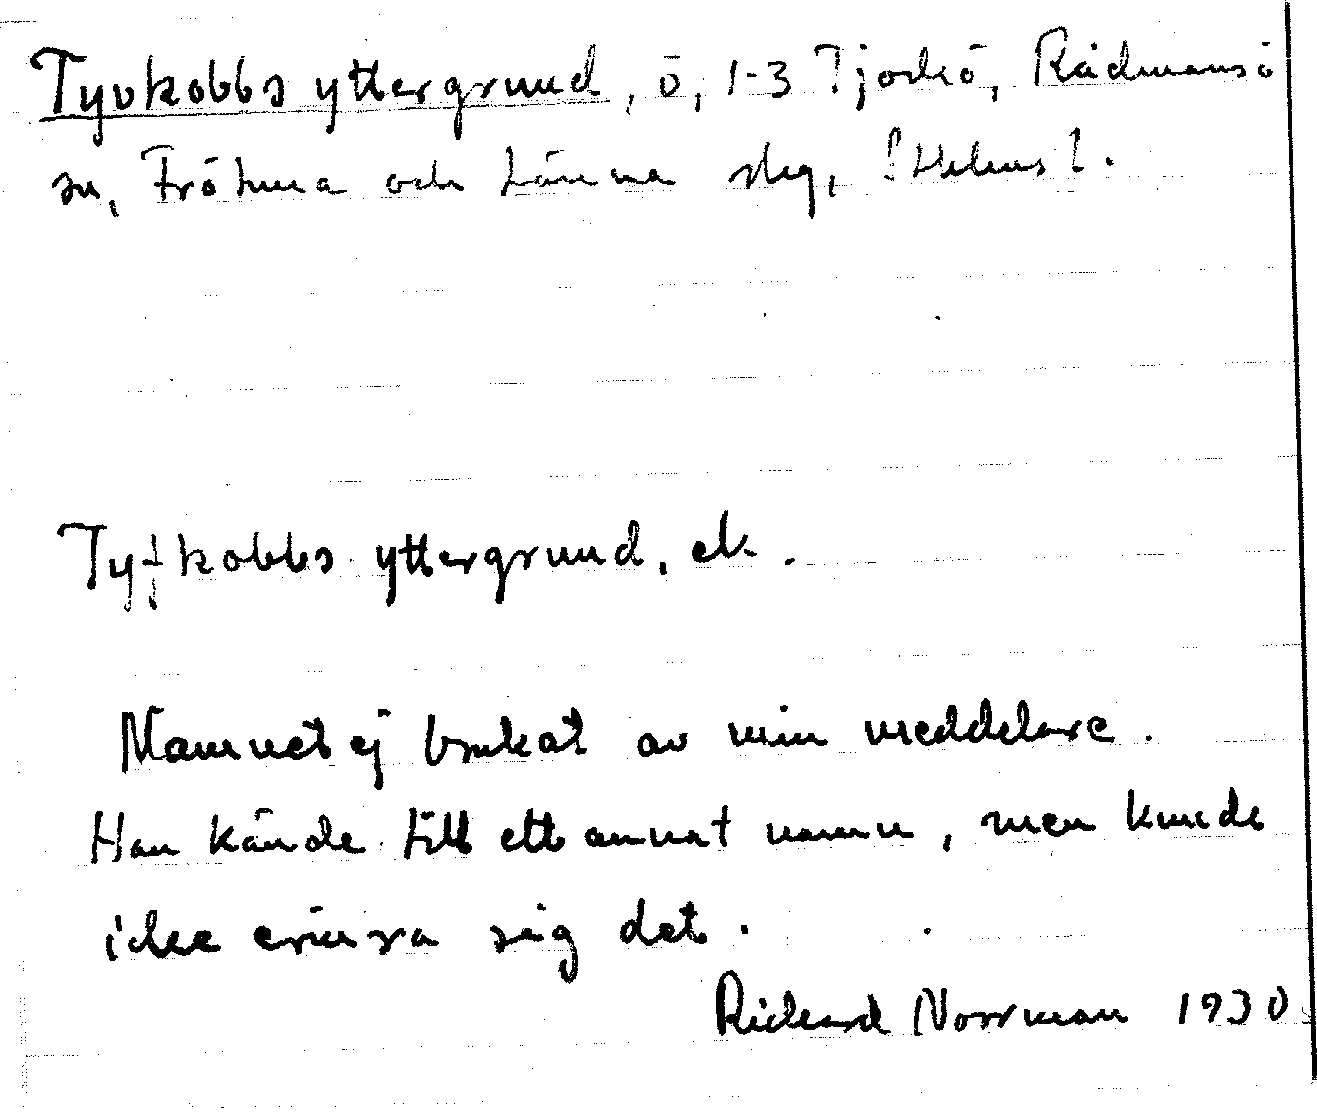 Tyvkobbs yttergrund, ö, 1-3 Tjockö, Rådmansö
sn, Frötuna och Länna slg, Sthlms l.
Tyfkobbs yttergrund, ek.
Namnet ej brukat av min meddelare.
Han kände till ett annat namn, men kunde
icke erinra sig det.
Rickard Norrman 1930